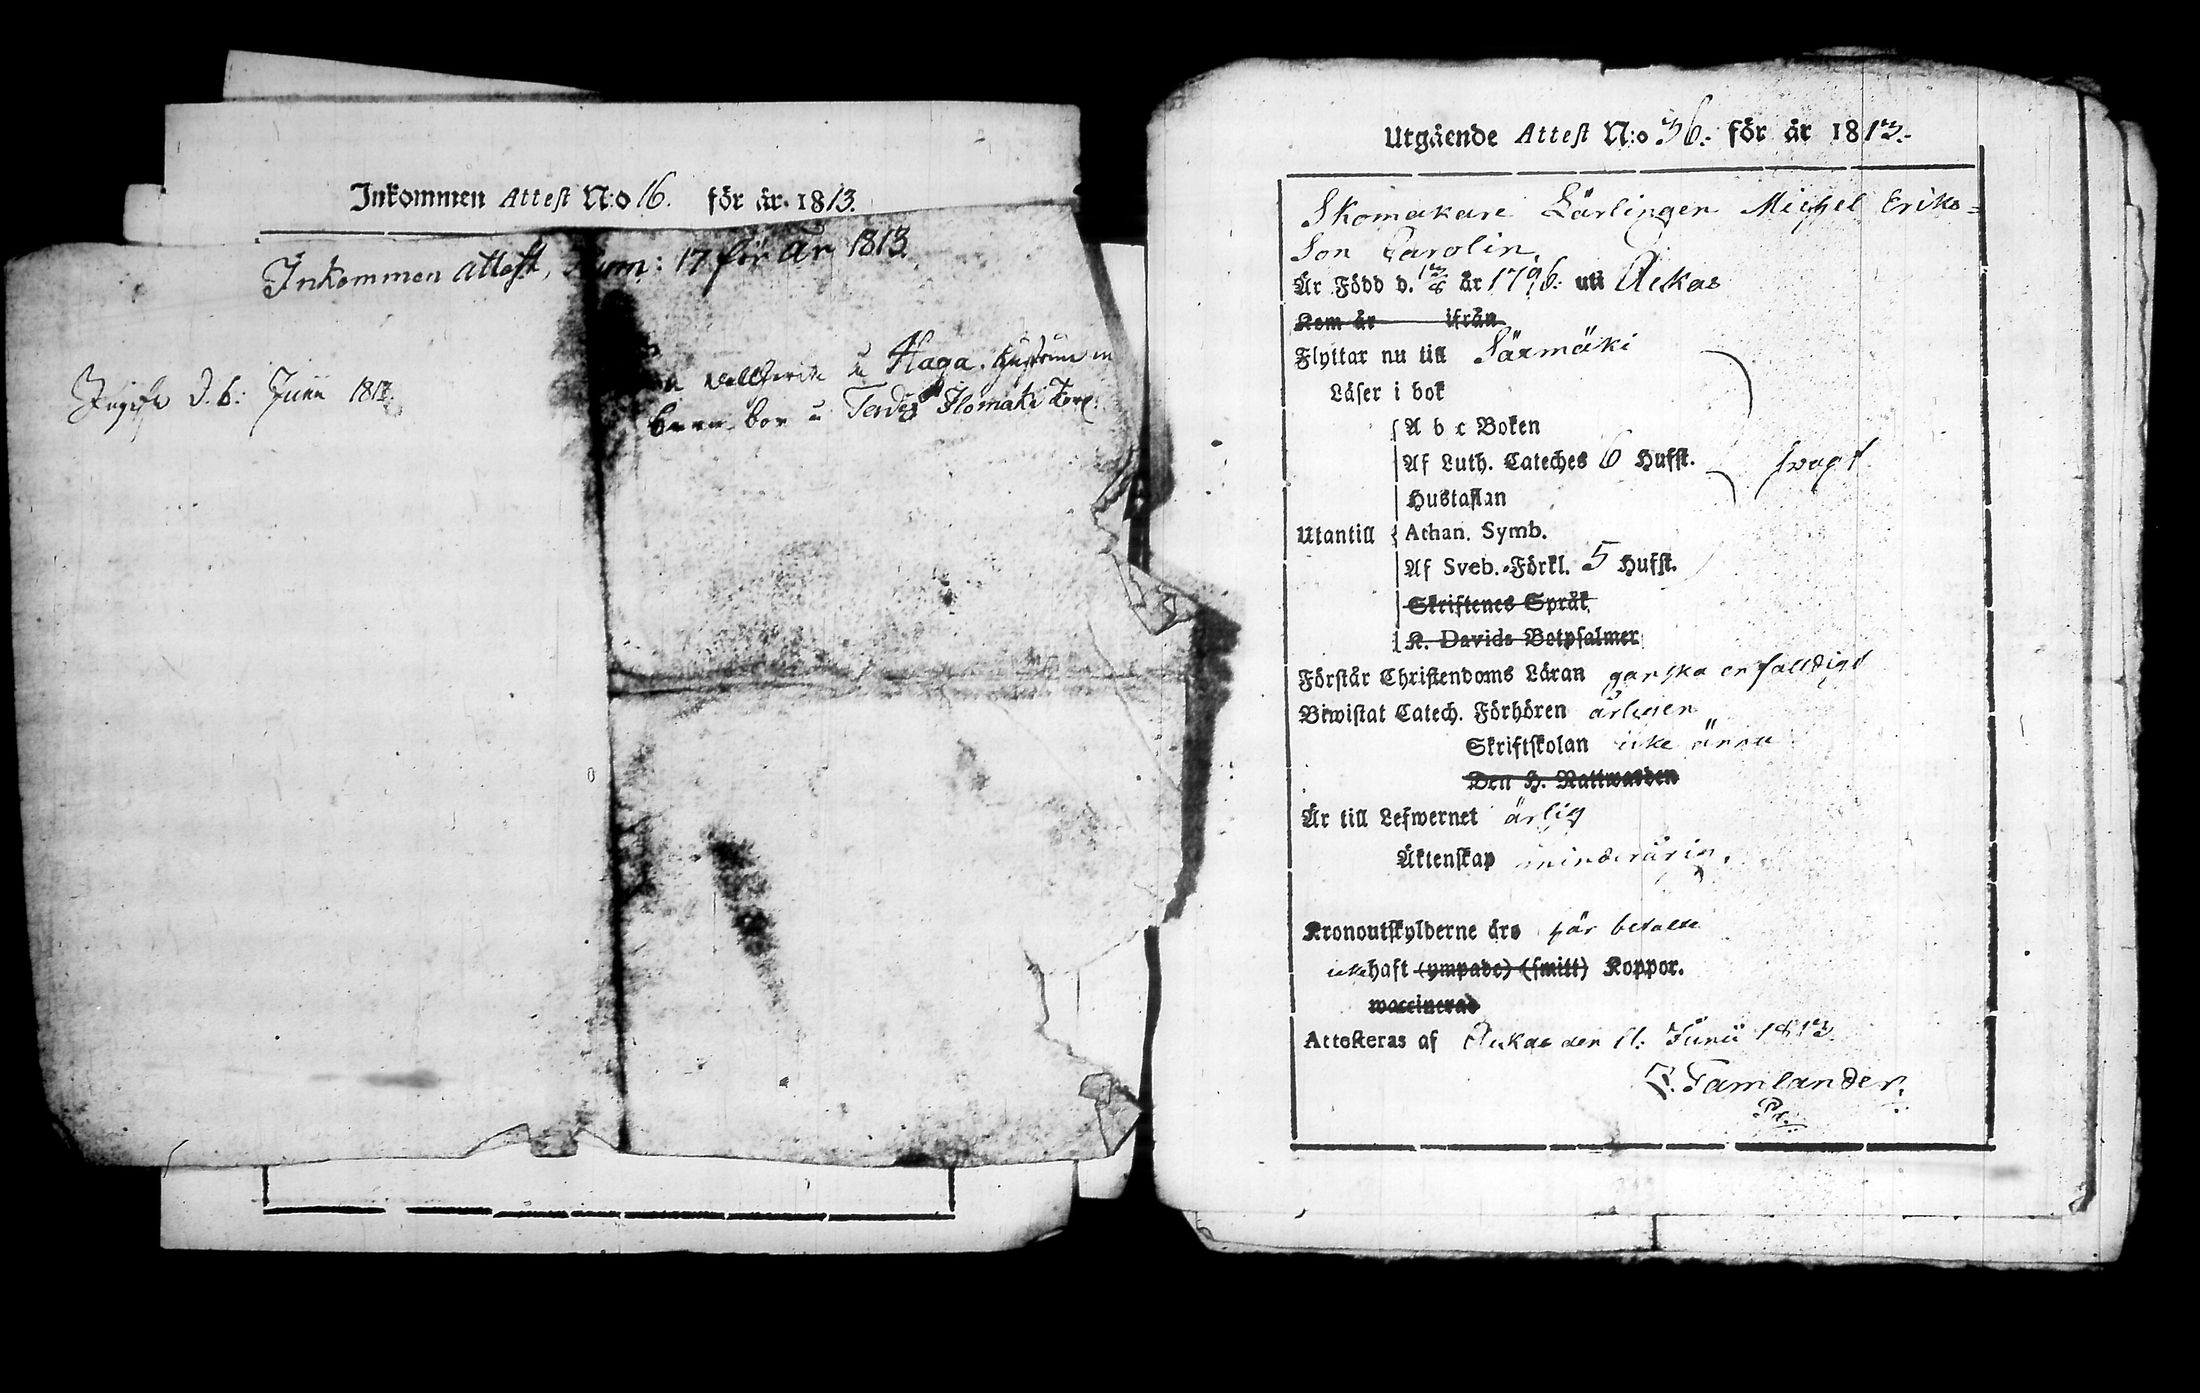 Inkommen Attest N:o 16. för år 1813.
Inkommen Attest, Num: 17 för År 1813
Ingifn d. 6. Junii 1813.
u Haga. Hustrun
barn bor u Ilomäki Torp.
Utgående Attest N:o 36. för år 1813.
Skomakare Lärlingen Michel Eriks=
son Carolin,
Är Född d. 13/8 år 1796. uti Uckas
Kom år ifrån
Flyttar nu till Särmäki
Läser i bok
A b c Boken
Af Luth. Cateches 6 Hufst. svagt
Hustaflan
Utantill Athan. Symb.
Af Sveb. Förkl. 5 Hufst.
Skriftenes Språk
K. Davids Botpsalmer
Förstår Christendoms Läran ganska enfalldigt
Biwistat Catech. Förhören årligen
Skriftskolan icke ännu
Den H. Nattwarden
Är till Lefwernet ärlig
Äktenskap minderårig.
Kronoutskylderne äro här betalte
icke haft (ympade) (smitt) Koppor.
waccinerad
Attesteras af den 11. Junii 1813.
Famlander.
Pr.